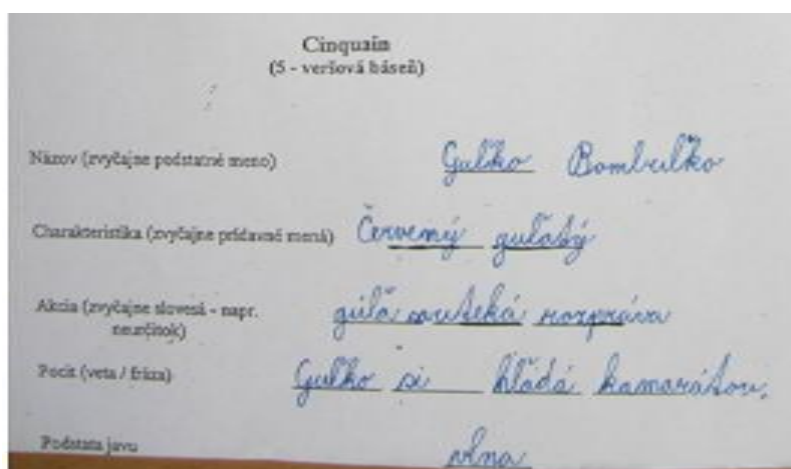 Cinquain
(5 - veršová báseň)
Názov (zvyčajne podstatné meno) Guľko Bombuľko
Charakteristika (zvyčajne prídavné mená) Červený guľatý
Akcia (zvyčajne slovesá - napr. neurčitok) gúľa sa uteká rozpráva
Pocit (veta / fráza) Guľko si hľadá kamarátov.
Podstata javu vlna